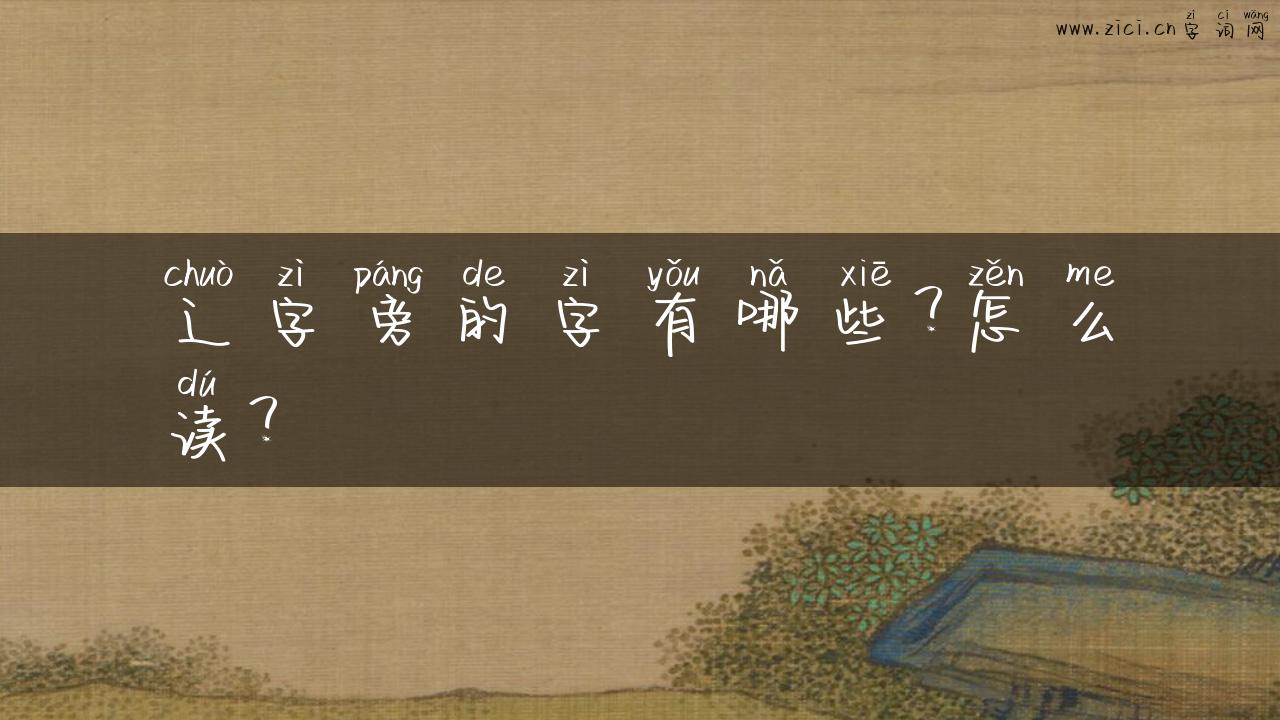 zì cí wǎng
www.zici.cn 字 词 网
chuò zì páng de zì yǒu nǎ xiē zěn me
辶 字 旁 的 字 有 哪 些 ? 怎 么
dú
读 ?